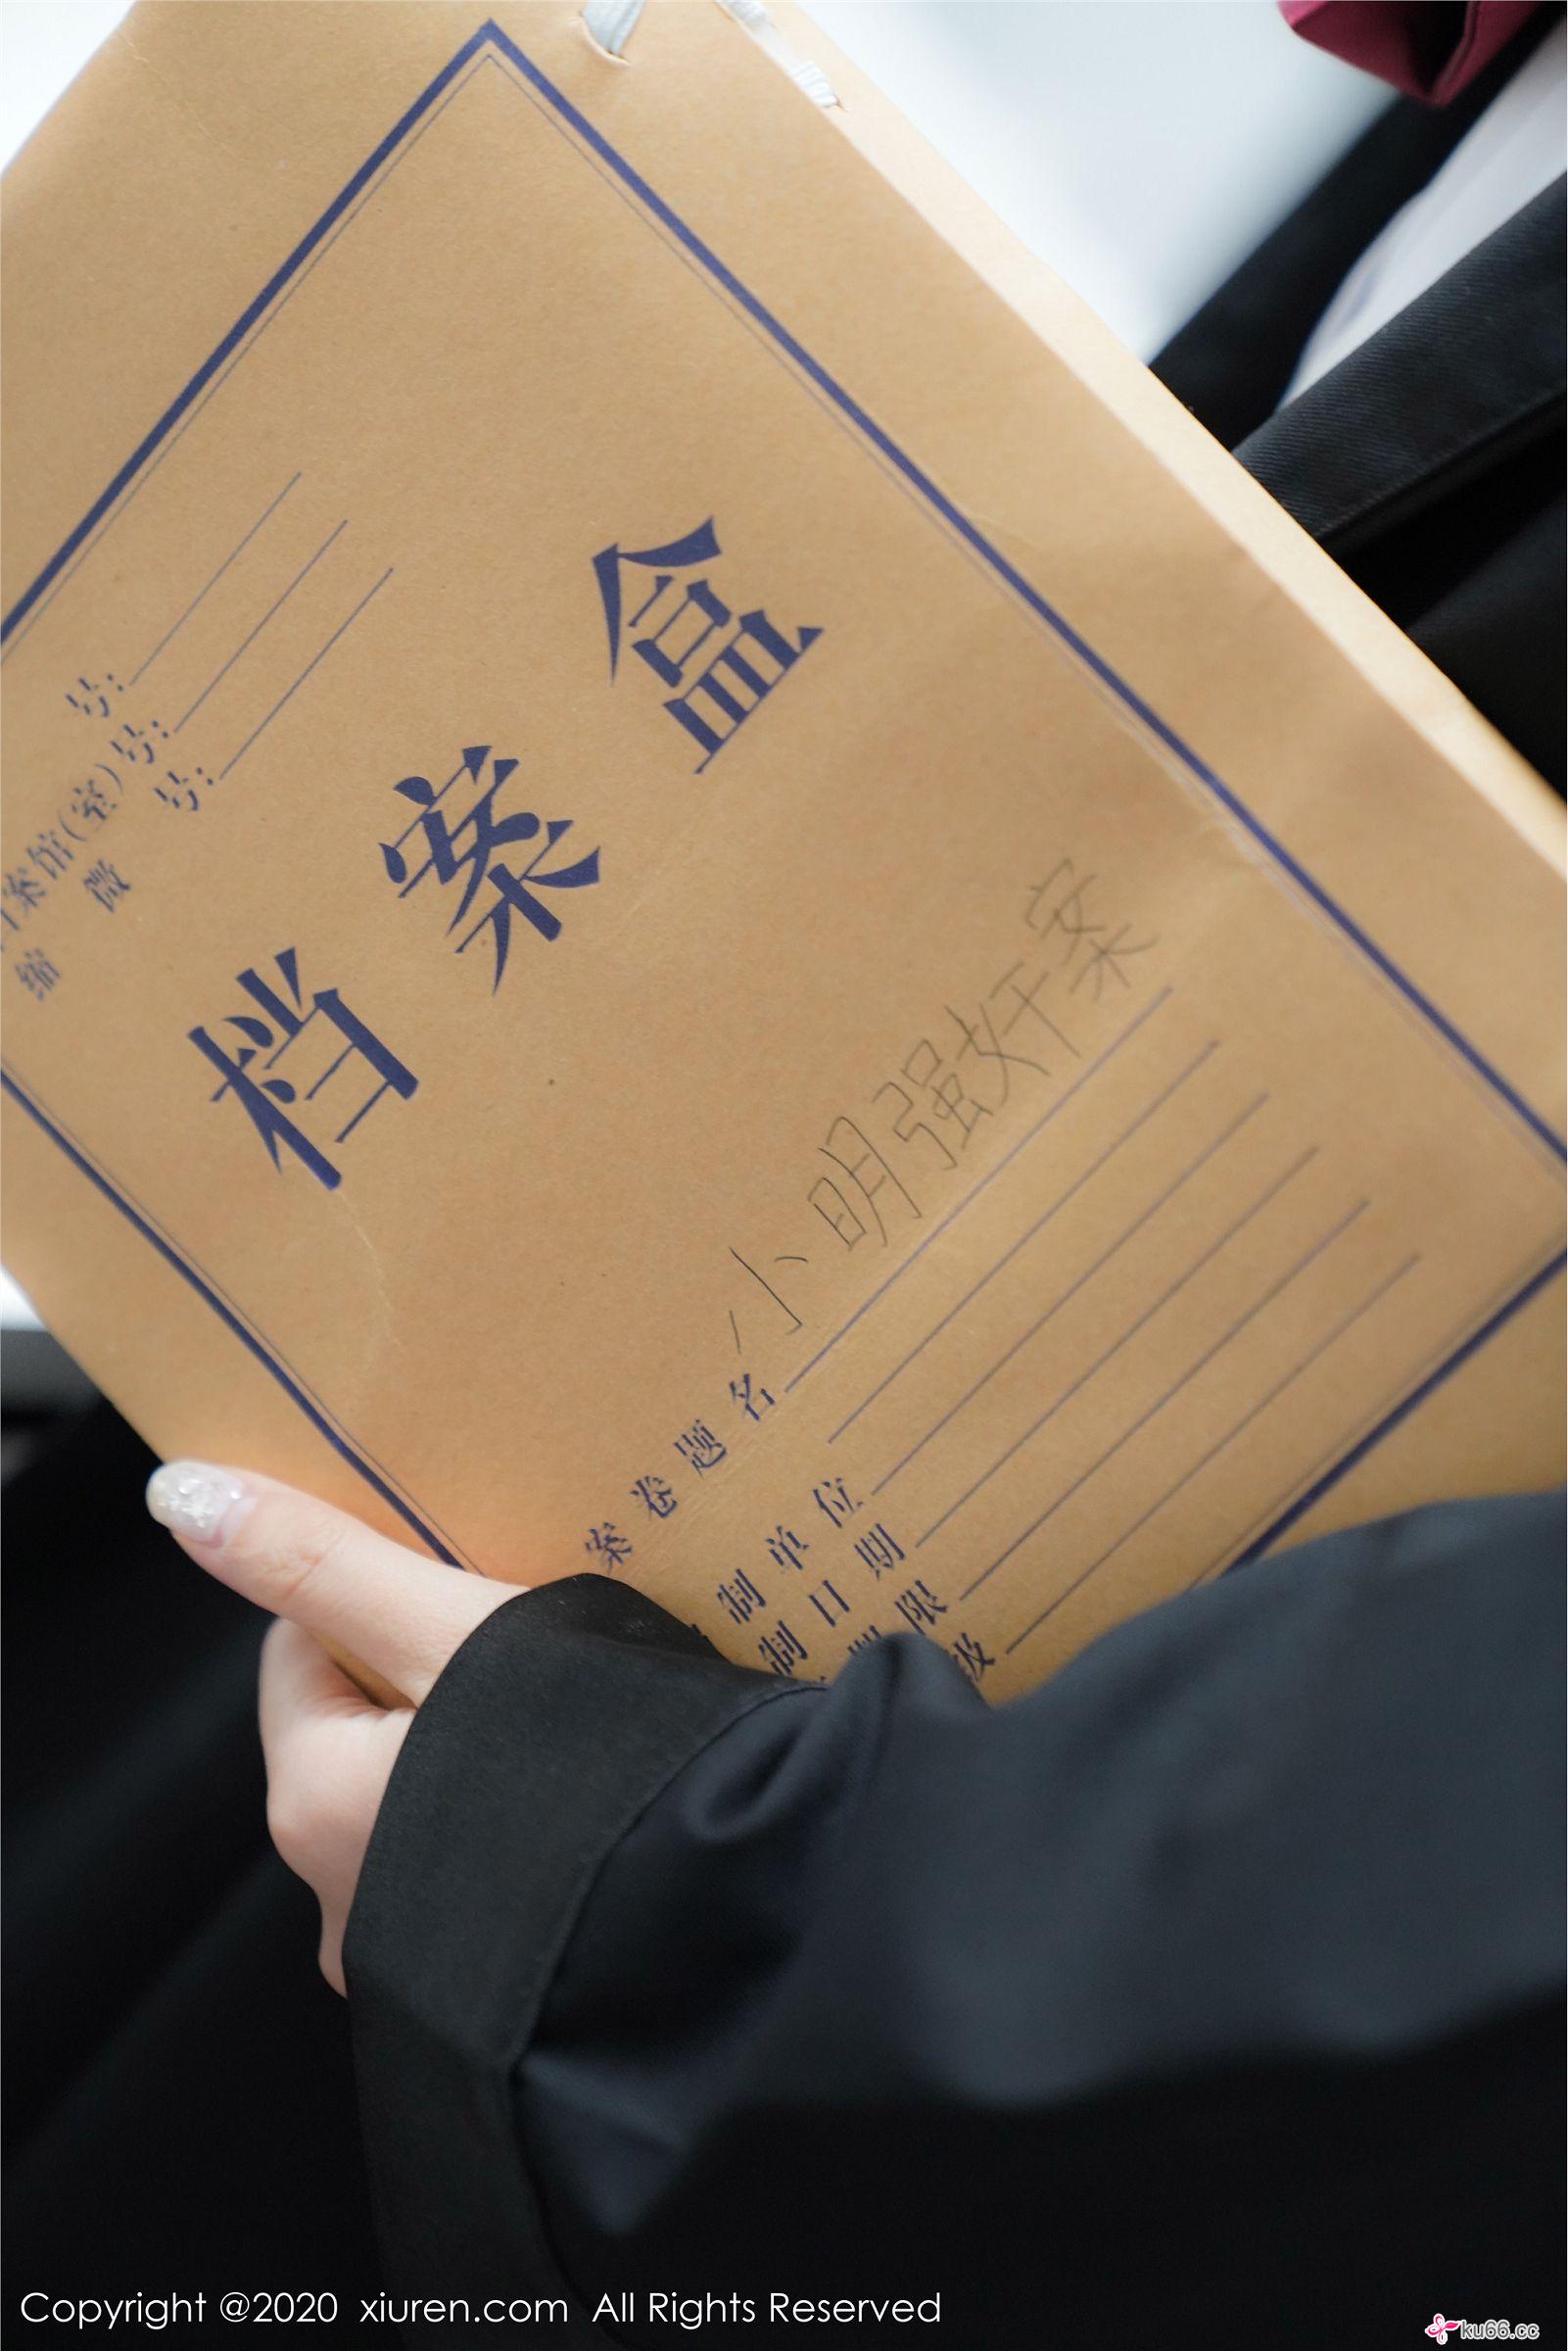 号：
档案馆（室）号：
缩 微 号：
档 案 盒
案 卷 题 名 小明强奸案
制 单 位
制 日 期
期 限
级
Copyright @2020 xiuren.com All Rights Reserved
ku66.cc